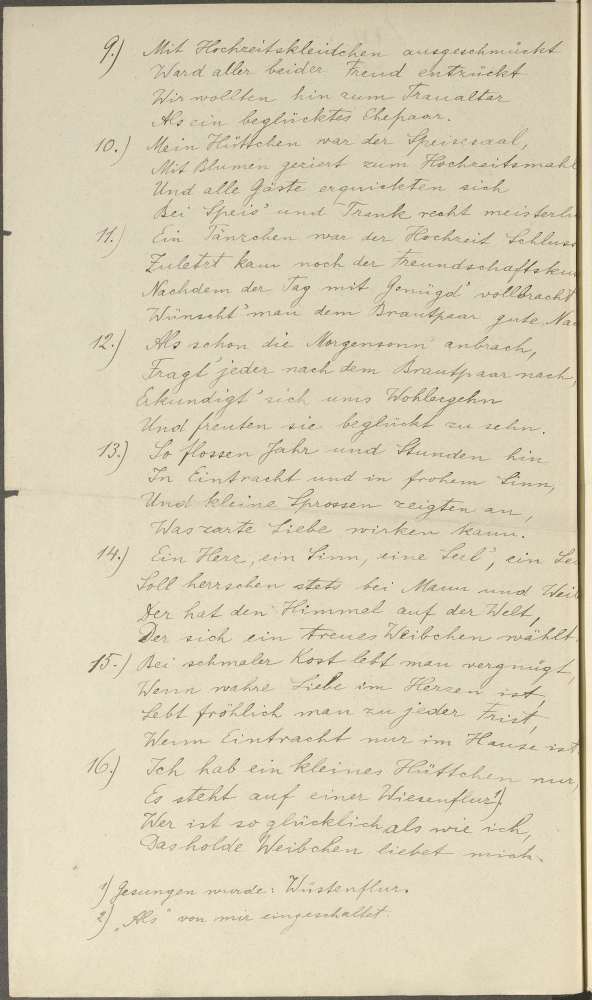 9.) Mit Hochzeitskleidchen ausgeschmückt
Ward aller beider Freud entzückt
Wir wollten hin zum Traualtar
Als ein beglücktes Ehepaar.
10.) Mein Hüttchen war der Speisesaal,
Mit Blumen geziert zum Hochzeitsmahl
Und alle Gäste erquickten sich
Bei Speis' und Trank recht meisterli
11.) Ein Tänzchen war der Hochzeit Schluss
Zuletzt kam noch der Freundschaftsku
Nachdem der Tag mit Genügd' vollbracht
Wünscht' man dem Brautpaar gute Na
12.) Als schon die Morgensonn' anbrach,
Fragt' jeder nach dem Brautpaar nach,
Erkundigt' sich ums Wohlergehn
Und freuten sie beglückt zu sehn.
13.) So flossen Jahr und Stunden hin
In Eintracht und in frohem Sinn,
Und kleine Sprossen zeigten an,
Was zarte Liebe wirken kann.
14.) Ein Herz, ein Sinn, eine Seel', ein Le
Soll herrschen stets bei Mann und Wei
Der hat den Himmel auf der Welt,
Der sich ein treues Weibchen wählt.
15.) Bei schmaler Kost lebt man vergnügt,
Wenn wahre Liebe im Herzen ist,
Lebt fröhlich man zu jeder Frist,
Wenn Eintracht nur im Hause ist
16.) Ich hab ein kleines Hüttchen nur,
Es steht auf einer Wiesenflur 1).
Wer ist so glücklich als wie ich,
Das holde Weibchen liebet mich.
1) Gesungen wurde: Wüstenflur.
2) „Als" von mir eingeschaltet.